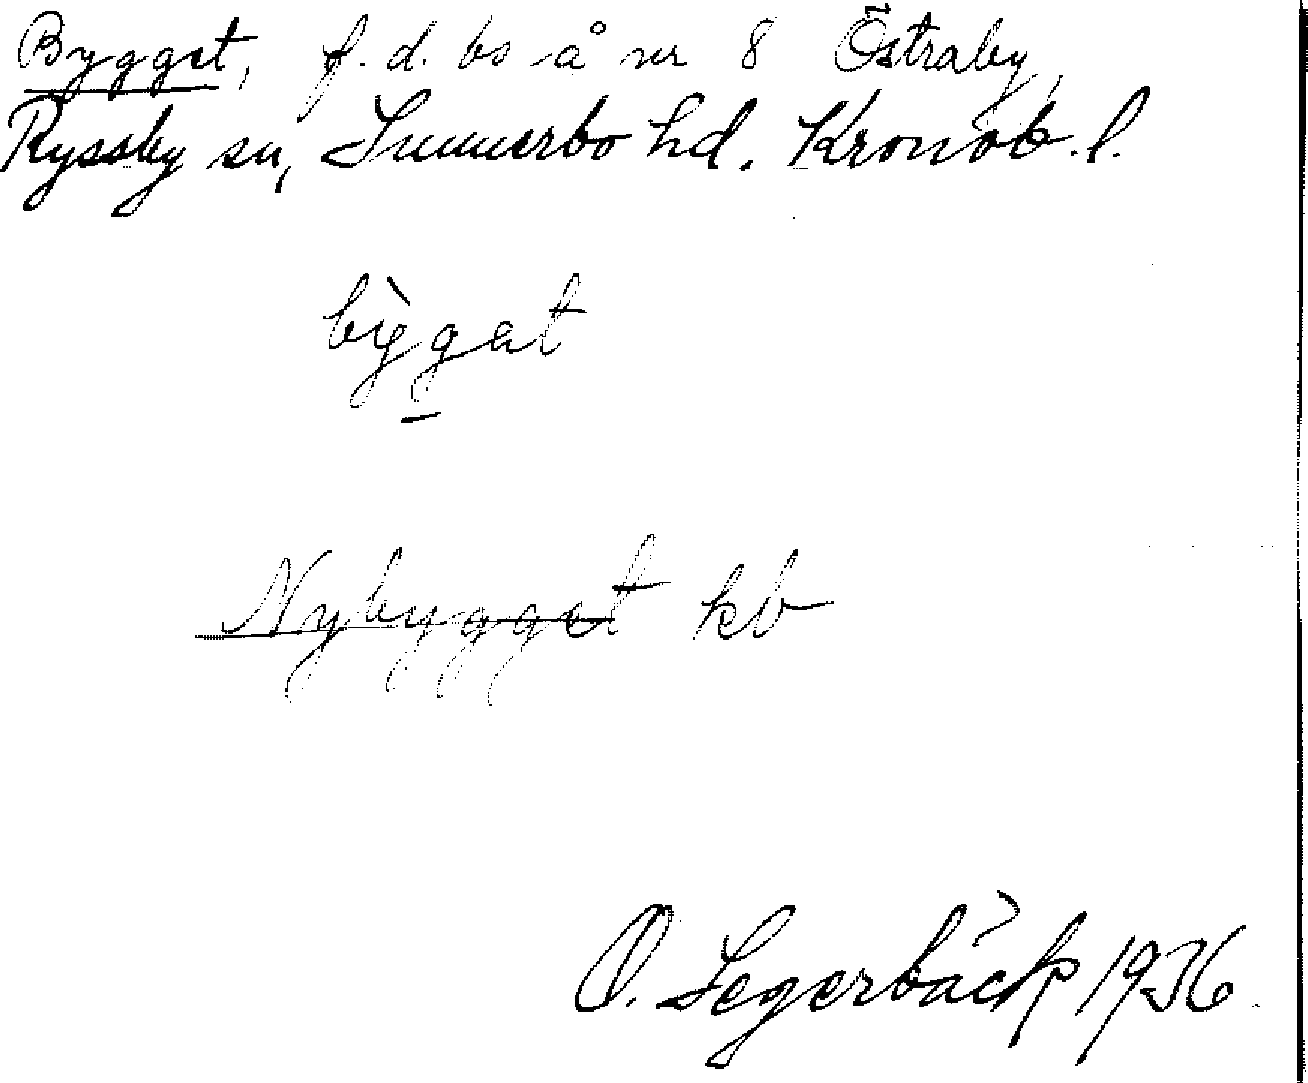 Bygget, f.d. bs å nr 8 Östraby,
Ryssby sn, Sunnerbo hd. Kronob. l.
bỳgat
Nybygget kb
O. Segerbäck 1936.